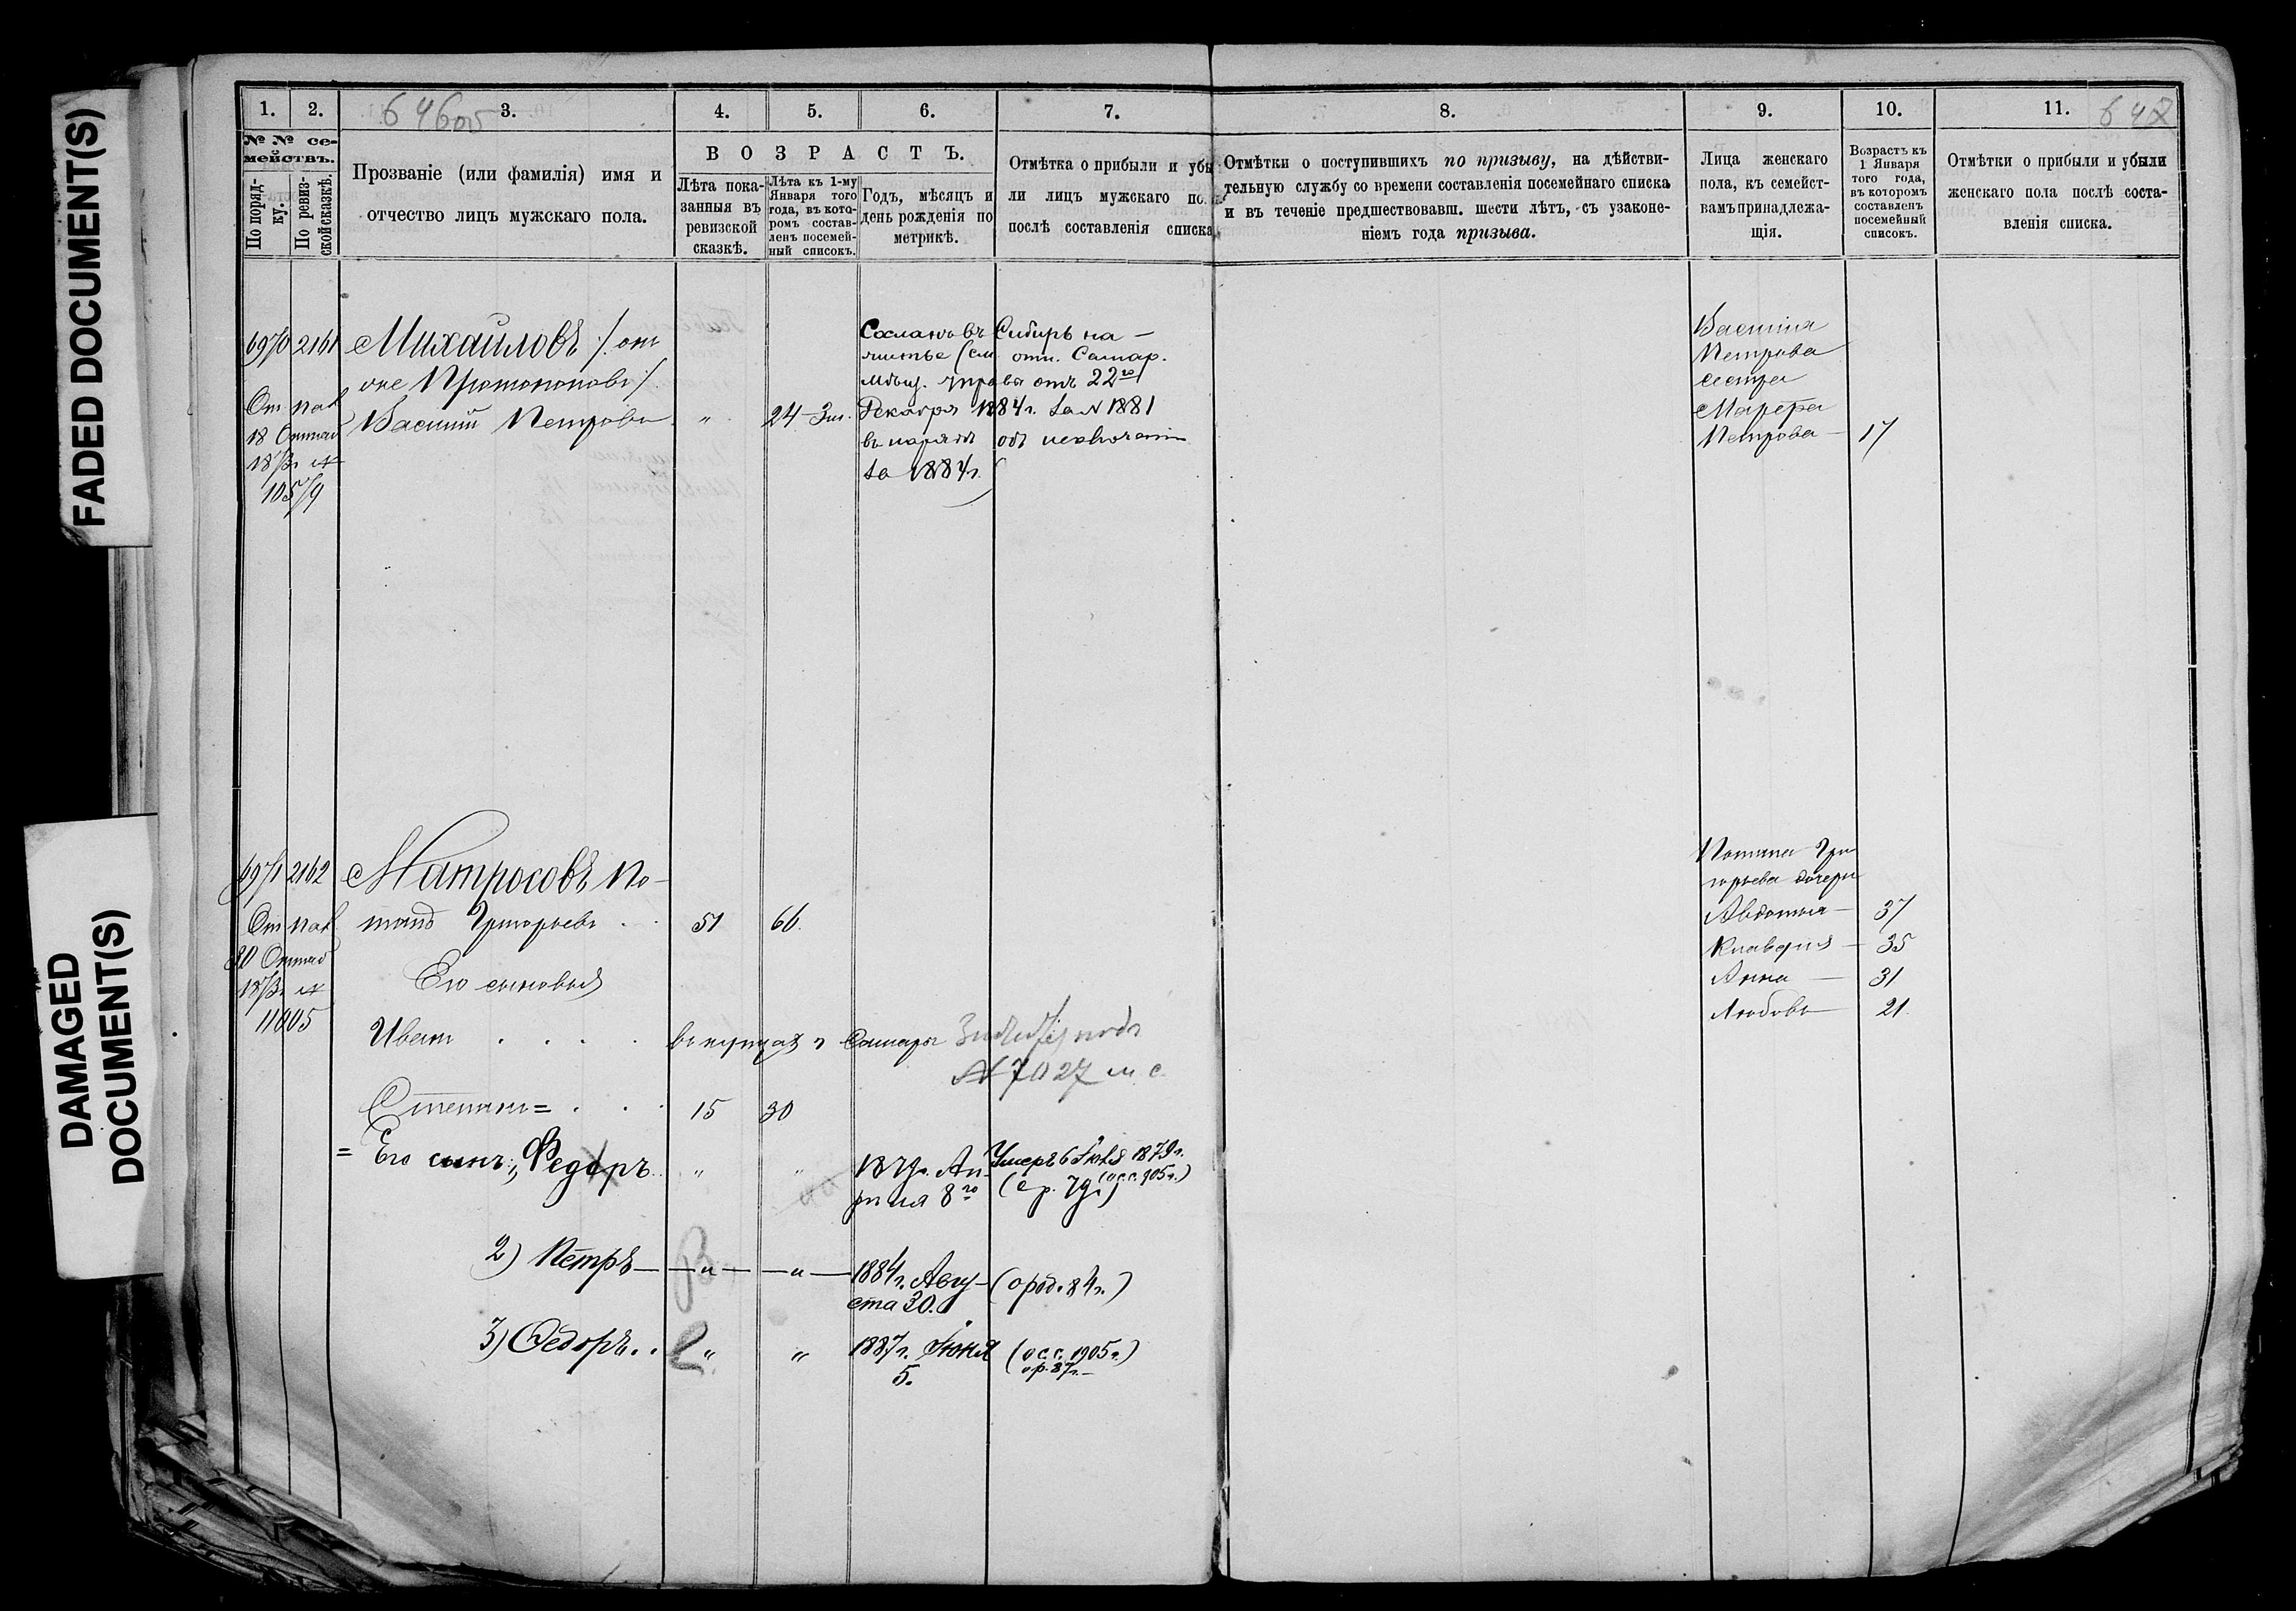 FADED DOCUMENT(S)
DAMAGED DOCUMENT(S)
1. 2. 3. 4. 5. 6. 7. 8. 9. 10. 11.
646об
647
№ № се-
мействъ.
По поряд-
ку.
По ревиз-
ской сказкѣ.
Прозваніе (или фамилія) имя и
отчество лицъ мужскаго пола.
ВОЗРАСТЪ.
Лѣта пока-
занныя въ
ревизской
сказкѣ.
Лѣта къ 1-му
Января того
года, въ кото-
ромъ состав-
ленъ посемей-
ный списокъ.
Годъ, мѣсяцъ и
день рожденія по
метрикѣ.
Отмѣтка о прибыли и убы
ли лицъ мужскаго по
послѣ составленія списка
Отмѣтки о поступившихъ по призыву, на дѣйстви-
тельную службу со времени составленія посемейнаго списка
и въ теченіе предшествовавш. шести лѣтъ, съ узаконе-
ніемъ года призыва.
Лица женскаго
пола, къ семейст-
вамъ принадлежа-
щія.
Возрастъ къ
1 Января
того года,
въ которомъ
составленъ
посемейный
списокъ.
Отмѣтки о прибыли и убыли
женскаго пола послѣ соста-
вленія списка.
6970 2161 Михайловъ /: онъ
же Протопоповъ :/
Василій Петровъ " 24
Сосланъ въ Сибирь на
житье (см. отн. Самар.
Мѣщ. управы отъ 22го
Декабря 1884г. за № 1881
въ нарядѣ объ исключеніи
за 1884г.
105/9
Василія
Петрова
сестра
Марѳа
Петрова — 17
6971 2162 Матросовъ По-
тапъ Григорьевъ . . 51 66.
11005
Его сыновья
Иванъ . . . . въ купцахъ г. Самары
№ 7027 м. с.
Степанъ = . . . 15 30
= Его сынъ, Федоръ " " 1879г. Ап-
рѣля 8го
Умеръ 6 Іюля 1879г.
(о р. 79г.) (о с.с. 905г.)
2) Петръ — " — — " — 1884г. Авгу-
ста 30.
(о род. 84г.)
3) Ѳедоръ . . " " 1887г. Іюня
5.
(о с.с. 1905г.)
о р. 87г. —
Потапа Гри
горьева дочери
Авдотья — 37
Клавдия — 35
Анна — 31
Любовь 21.